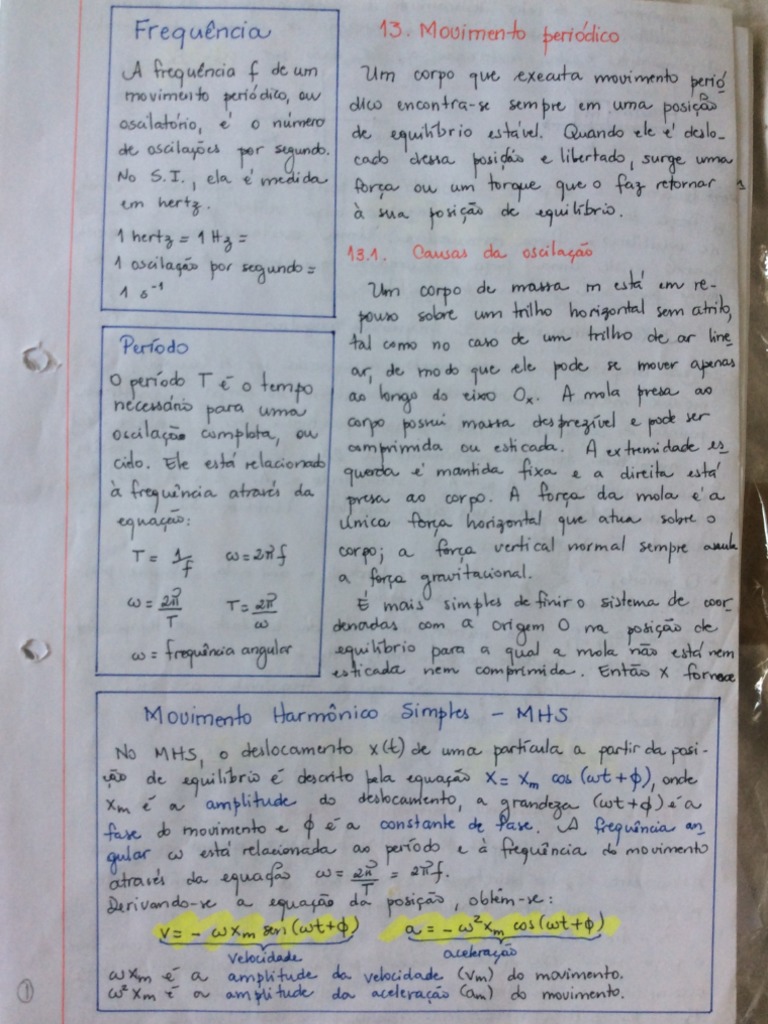 Frequência
A frequência f de um
movimento periódico, ou
oscilatório, é o número
de oscilações por segundo.
No S.I., ela é medida
em hertz.
1 hertz = 1 Hz =
1 oscilação por segundo =
1 s⁻¹
Período
O período T é o tempo
necessário para uma
oscilação completa, ou
ciclo. Ele está relacionado
à frequência através da
equação:
T = 1/f ω = 2πf
ω = 2π/T T = 2π/ω
ω = frequência angular
13. Movimento periódico
Um corpo que executa movimento perió
dico encontra-se sempre em uma posição
de equilíbrio estável. Quando ele é deslo-
cado dessa posição e libertado, surge uma
força ou um torque que o faz retornar
à sua posição de equilíbrio.
13.1. Causas da oscilação
Um corpo de massa m está em re-
pouso sobre um trilho horizontal sem atrito,
tal como no caso de um trilho de ar line
ar, de modo que ele pode se mover apenas
ao longo do eixo Ox. A mola presa ao
corpo possui massa desprezível e pode ser
comprimida ou esticada. A extremidade es
querda é mantida fixa e a direita está
presa ao corpo. A força da mola é a
única força horizontal que atua sobre o
corpo; a força vertical normal sempre anula
a força gravitacional.
É mais simples definir o sistema de coor
denadas com a origem O na posição de
equilíbrio para a qual a mola não está nem
esticada nem comprimida. Então x fornece
Movimento Harmônico Simples – MHS
No MHS, o deslocamento x(t) de uma partícula a partir da posi-
ção de equilíbrio é descrito pela equação x = xm cos (ωt + ϕ), onde
xm é a amplitude do deslocamento, a grandeza (ωt + ϕ) é a
fase do movimento e ϕ é a constante de fase. A frequência an
gular ω está relacionada ao período e à frequência do movimento
através da equação ω = 2π/T = 2πf.
Derivando-se a equação da posição, obtém-se:
v = - ωxm sen (ωt + ϕ) a = - ω²xm cos (ωt + ϕ)
velocidade aceleração
ωxm é a amplitude da velocidade (vm) do movimento.
ω²xm é a amplitude da aceleração (am) do movimento.
1